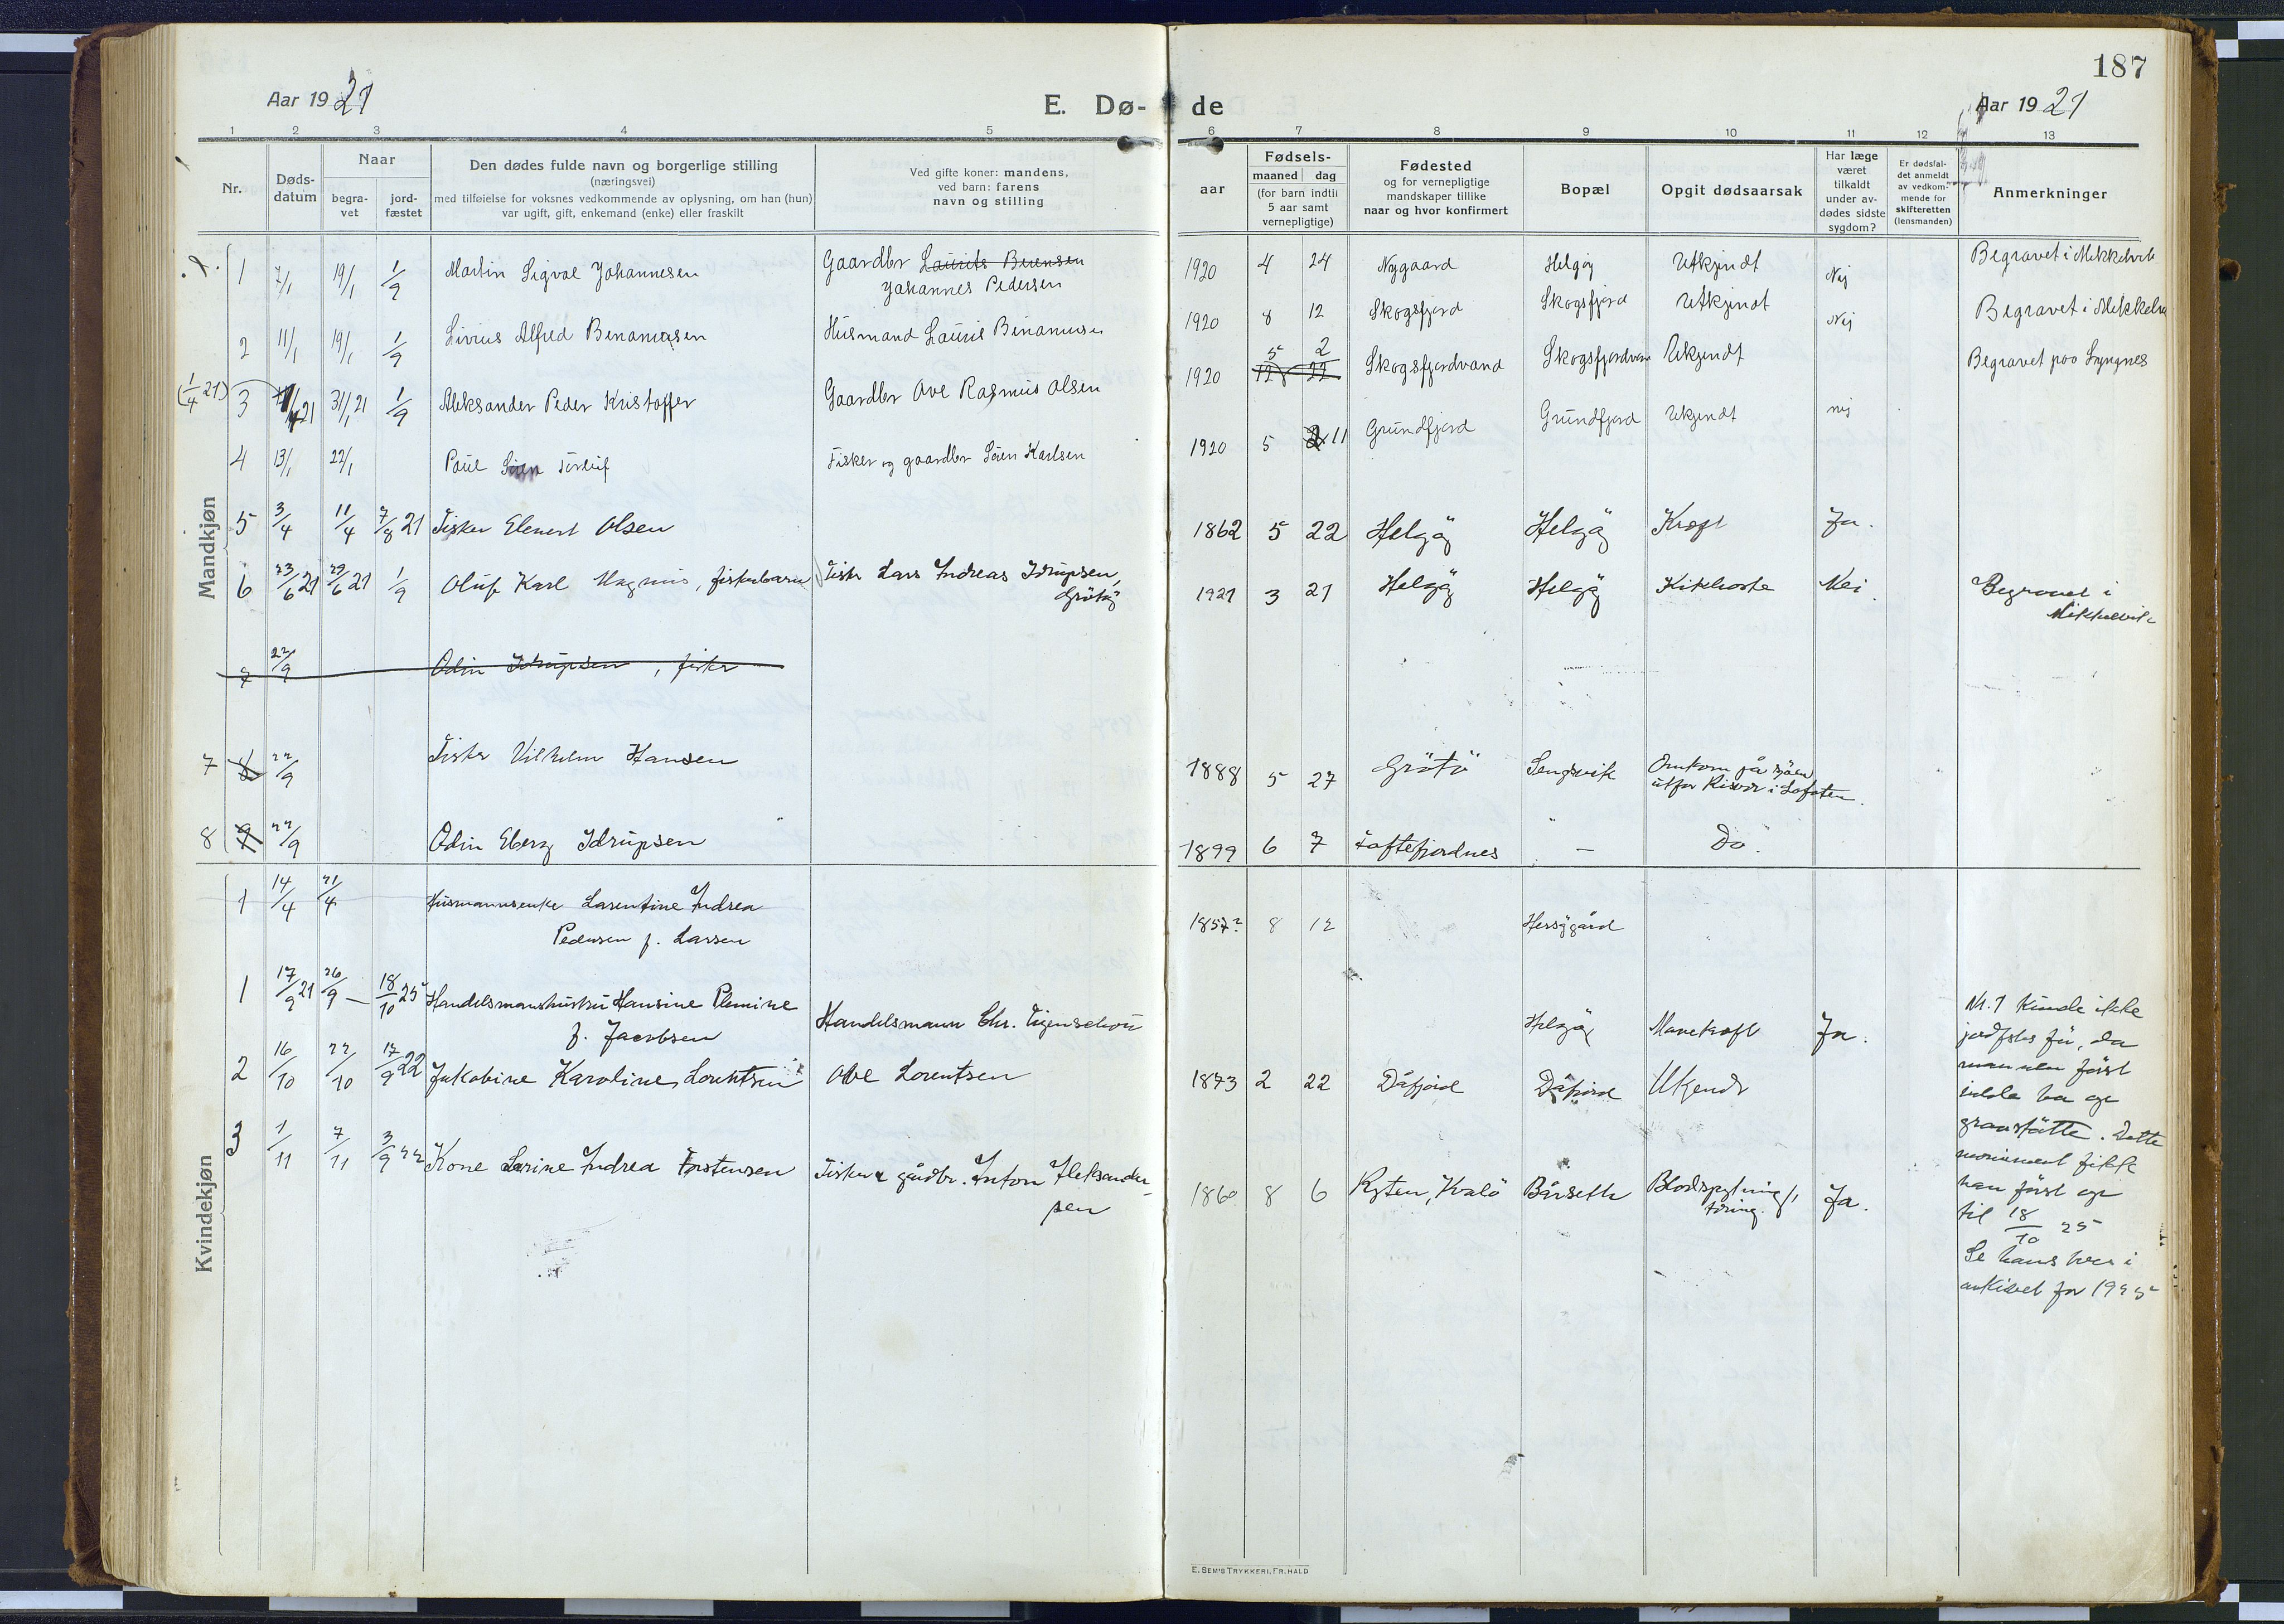 187
Aar 1921
E. Dø-
de
Aar 1921
1 2 3 4 5 6 7 8 9 10 11 12 13
Nr.
Døds-
datum
Naar
begra-
vet
jord-
fæstet
Den dødes fulde navn og borgerlige stilling
(næringsvei)
med tilføielse for voksnes vedkommende av oplysning, om han (hun)
var ugift, gift, enkemand (enke) eller fraskilt
Ved gifte koner: mandens,
ved barn: farens
navn og stilling
aar
Fødsels-
maaned dag
(for barn indtil
5 aar samt
vernepligtige)
Fødested
og for vernepligtige
mandskaper tillike
naar og hvor konfirmert
Bopæl
Opgit dødsaarsak
Har læge
været
tilkaldt
under av-
dødes sidste
sygdom?
Er dødsfal-
det anmeldt
av vedkom-
mende for
skifteretten
(lensmanden)
Anmerkninger
Mandkjøn
1 7/1 19/1 1/9 Martin Sigval Johannesen Gaardbr Laurits Berensen
Johannes Pedersen
1920 4 24 Nygaard Helgøy Utkjendt Nej Begravet i Mekkelvik
2 11/1 19/1 1/9 Livius Alfred Benamusen Husmand Lauris Benamusen
1920 8 12 Skogsfjord Skogsfjord Utkjendt Nej Begravet i Mekkelv
(1/4 21) 3 31/1 21 1/9 Aleksander Peder Kristoffer Gaardbr Ove Rasmus Olsen
1920 5 2 12 22 Skogsfjordvand Skogsfjordvan Ukjendt Begravet paa Lyngnes
4 13/1 22/1 Paul Søren Torleif Fisker og gaardbr Søren Karlsen
1920 5 11 Grundfjord Grundfjord Ukjendt nej
5 3/4 11/4 7/8 21 Fisker Elenert Olsen
1862 5 22 Helgøy Helgøy Kræft Ja.
6 23/6 21 29/6 21 1/9 Oluf Karl Magnus, fiskerbarn Fisker Lars Andreas Idrupsen,
Grøtøy
1921 3 21 Helgøy Helgøy Kikhoste Nei. Begravet i
Mikkelvik
7 22/9 Odin Idrupsen, fisker
7 8 22/9 Fisker Vilhelm Hansen
1888 5 27 Grøtø Sengsvik Omkom på sjøen
utfor Risvær i Lofoten.
8 9 22/9 Odin Eberg Idrupsen
1899 6 7 Toftefjordnes — Do.
Kvindekjøn
1 14/4 21/4 Husmannsenke Larentine Andrea
Pedersen f. Larsen
1857? 8 12 Hessøgård
1 17/9 21 26/9 — 18/10 25 Handelsmanshustru Hansine Plemine
f. Jacobsen
Handelsmann Chr. Figenschou
Helgøy Mavekræft Ja.
2 16/10 22/10 17/9 22 Jakobine Karoline Lorentsen Ove Lorentsen
1873 2 22 Dåfjord Dåfjord Ukjendt
3 1/11 7/11 3/9 22 Kone Larine Andrea Torstensen Fisker & gårdbr. Anton Aleksander-
sen
1860 8 6 Ryten, Kvalö Bårseth Blodspytning,
tæring. Ja.
Nr. 1 kunde ikke
jordfstes før, da
mannen først
vilde ha op
gravstøtte. Dette
monument fikk
han først op
til 18/10 25
Se hans brev i
arkivet for 1925
E. SEM'S TRYKKERI, FR.HALD